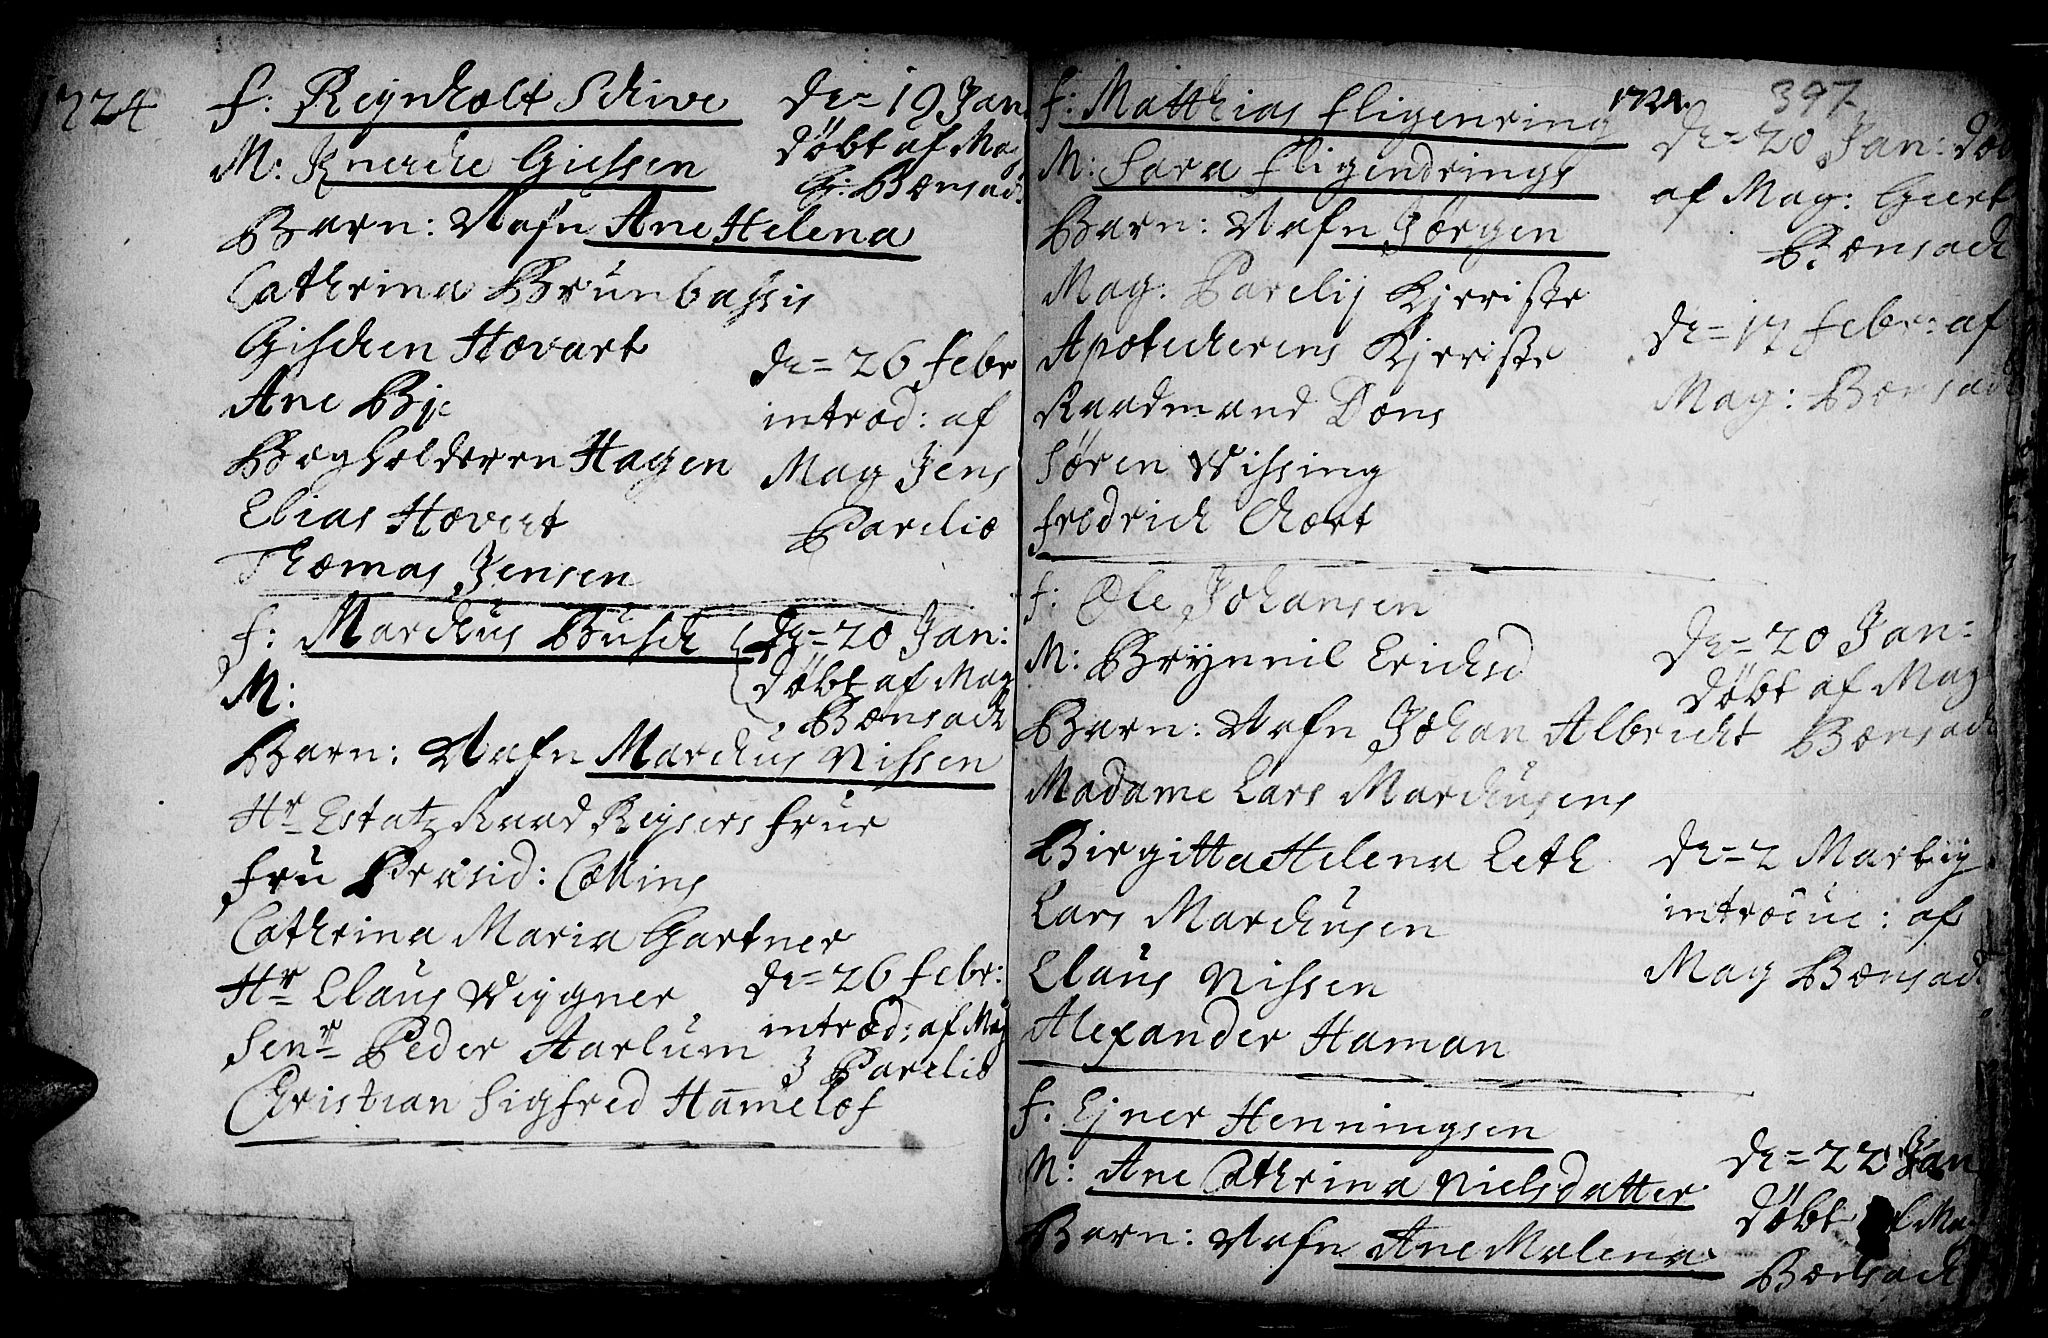 1724
F: Reynholt Schive
M: Knerche Giessen
Barn: Nafn Ane Helena
Cathrina Brünbassis
Gischen Hovart
Ane Bje
Bogholderen Hagen
Elias Hovert
Thomas Jensen
De= 19 Jan
døbt af Mag
G: Bonsach
De= 26 Febr
introd: af
Mag Jens
Parelio
F: Marchus Büsch
M:
Barn: Nafn Marchus Nissen
Hr Estatz Raad Reysers Frue
Fru Præsid: Collins
Cathrina Maria Gartner
Hr Claus Weygner
Senr Peder Aarlum
Christian Sigfred Hamelof
De= 20 Jan:
døbt af Mag
Bonsach
De= 26 Febr:
introd: af Mag
J Parelio
397
F: Matthias Fligenring 1724.
M: Sara Fligendrings
Barn: Nafn Jørgen
Mag: Parelij Kjeriste
Apotecherens Kjeriste
Raadmand Dons
Søren Wissing
Fredrich Chort
De= 20 Jan: døbt
af Mag: Giert
Bonsach
De= 17 Febr: af
Mag: Bonsach
F: Ole Johansen
M: Brynnil Erichsd
Barn: Nafn Johan Albricht
Madame Lars Marchusens
Birgitta Helena Leth
Lars Marchusen
Claus Nissen
Alexander Haman
De= 20 Jan:
døbt af Mag
Bonsach
De= 2 Martij
introduc: af
Mag Bonsach
F: Ejner Henningsen
M: Ane Cathrina Nielsdatter
Barn: Nafn Ane Malena
De= 22 Jan
døbt af Mag
Bonsach